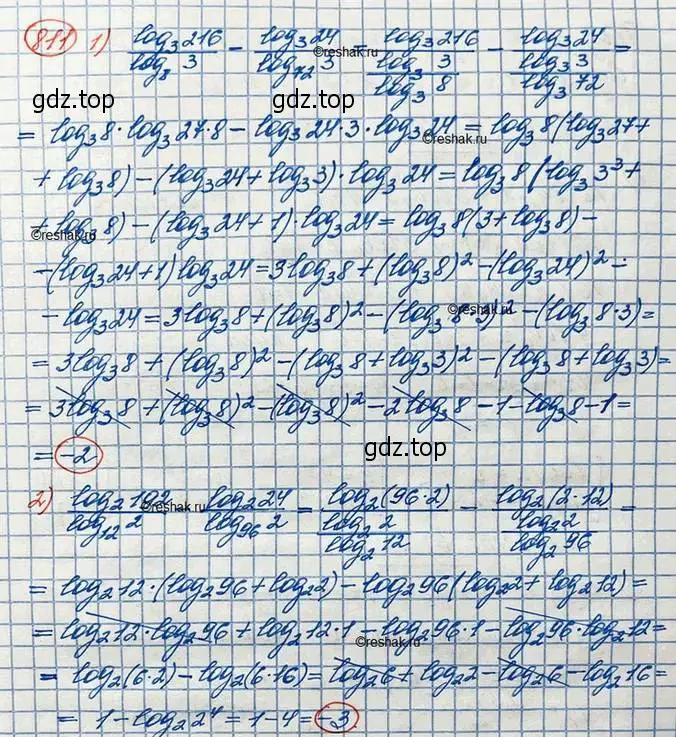 811 1) log₃216/log₈3 − log₃24/log₇₂3 = log₃216/(log₃3/log₃8) − log₃24/(log₃3/log₃72) =
= log₃8·log₃27·8 − log₃24·3·log₃24 = log₃8(log₃27+
+ log₃8) − (log₃24 + log₃3)·log₃24 = log₃8(log₃3³+
+ log₃8) − (log₃24 + 1)·log₃24 = log₃8(3 + log₃8) −
− (log₃24+1)log₃24 = 3log₃8 + (log₃8)² − (log₃24)² −
− log₃24 = 3log₃8 + (log₃8)² − (log₃8·3)² − (log₃8·3) =
= 3log₃8 + (log₃8)² − (log₃8 + log₃3)² − (log₃8 + log₃3) =
= 3log₃8 + (log₃8)² − (log₃8)² − 2log₃8 − 1 − log₃8 − 1 =
= −2
2) log₂192/log₁₂2 − log₂24/log₉₆2 = log₂(96·2)/(log₂2/log₂12) − log₂(2·12)/(log₂2/log₂96) =
= log₂12·(log₂96 + log₂2) − log₂96(log₂2 + log₂12) =
= log₂12·log₂96 + log₂12·1 − log₂96·1 − log₂96·log₂12 =
= log₂(6·2) − log₂(6·16) = log₂6 + log₂2 − log₂6 − log₂16 =
= 1 − log₂2⁴ = 1 − 4 = −3
gdz.top
gdz.top
gdz.top
©reshak.ru
©reshak.ru
©reshak.ru
©reshak.ru
©reshak.ru
©reshak.ru
©reshak.ru